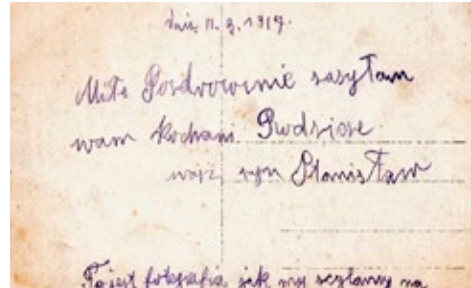 dnia 11. 9. 1919.
Miłe Pozdrowienie zasyłam
wam kochani Rodzice
wasz syn Stanisław
To jest fotografia, jak my na